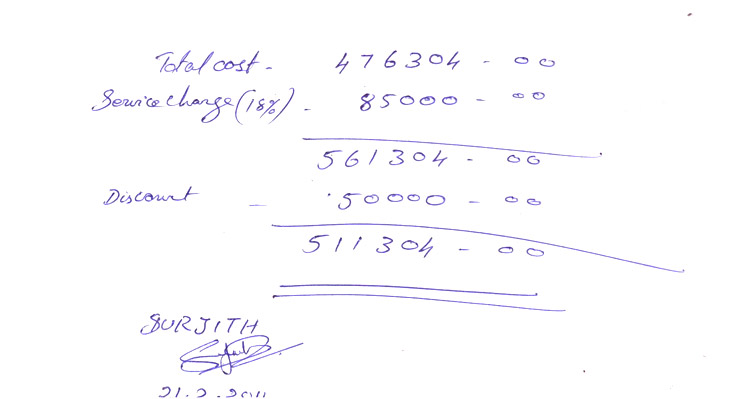 Total cost - 476304 - 00
Service charge (18%) - 85000 - 00
561304 - 00
Discount - 50000 - 00
511304 - 00
SURJITH
21.2.2011